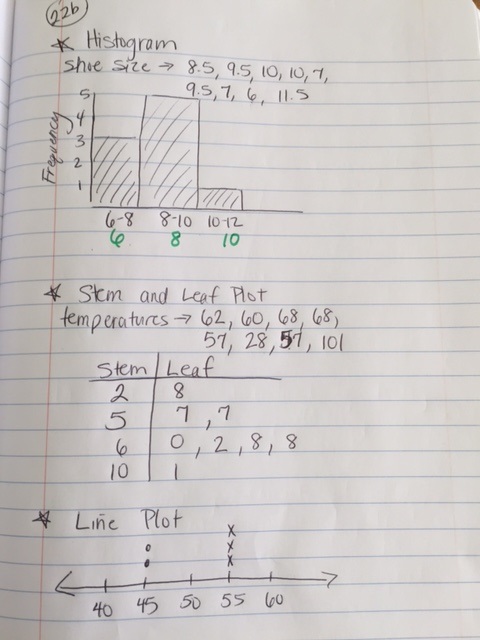 22b
* Histogram
shoe size → 8.5, 9.5, 10, 10, 7,
9.5, 7, 6, 11.5
Frequency
5
4
3
2
1
6-8 8-10 10-12
6 8 10
* Stem and Leaf Plot
temperatures → 62, 60, 68, 68,
57, 28, 57, 101
Stem Leaf
2 8
5 7, 7
6 0, 2, 8, 8
10 1
* Line Plot
40 45 50 55 60